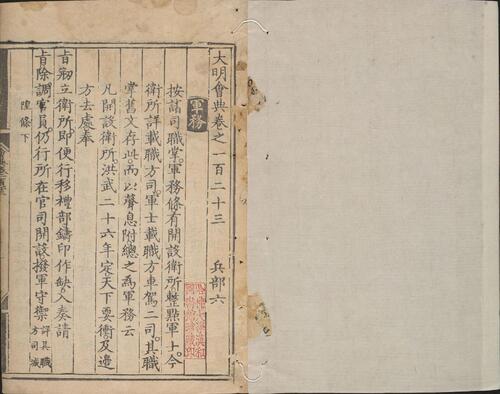 大明會典卷之一百二十三 兵部六
軍務
按諸司職掌軍務條有開設衛所整點軍士今
衛所詳載職方司軍士載職方車駕二司其職
掌舊文存此而以聲息附總之爲軍務云
凡開設衛所洪武二十六年定天下要衝及邊
方去處奉
旨剏立衛所即便行移禮部鑄印作缺入奏請
旨除調軍員仍行所在官司開設撥軍守禦詳具職
方司城
隍條下